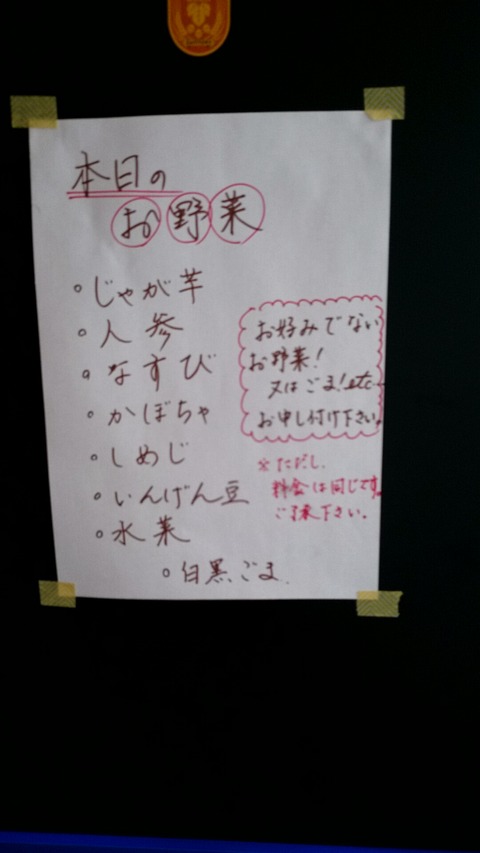 本日の
お野菜
○じゃが芋
○人参
○なすび
○かぼちゃ
○しめじ
○いんげん豆
○水菜
○白黒ごま
お好みでない
お野菜!
又はごま!etc…
お申し付け下さい。
※ただし、
料金は同じです。
ご了承下さい。